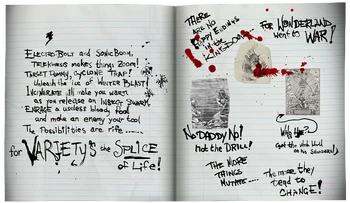 ELECTRO BOLT AND SONIC BOOM,
TELEKINESIS MAKES THINGS ZOOM!
TARGET DUMMY, CYCLONE TRAP!
UNLEASH THE ICE OF WINTER BLAST
INCINERATE WILL MAKE YOU WARM
AS YOU RELEASE AN INSECT SWARM.
ENRAGE A USELESS, BLOODY FOOL
AND MAKE AN ENEMY YOUR TOOL
THE POSSIBILITIES ARE RIFE......
for VARIETY'S the SPLICE
of Life!
THERE
ARE NO
HAPPY ENDINGS
IN THE
KINGDOM!
FOR WONDERLAND
WENT TO WAR!
NO DADDY NO!
Not the DRILL!
THE MORE
THINGS
MUTATE....
WHO HE?
Got the World
on his SHOULDERS!
The more they
TEND TO
CHANGE!